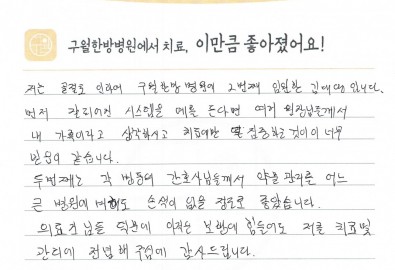 구월한방병원에서 치료, 이만큼 좋아졌어요!
저는 골절로 인하여 구월한방병원에 2번째 입원한 김대영입니다.
먼저 잘 시스템을 예를 든다면 여러 원장님들께서
내 가족이라고 생각하시고 치료에만 집중하고 것이 너무
인 같습니다.
두번째는 각 병동의 간호사님들께서 약을 관리를 어느
큰 병원에 비해도 손색이 없을 정도로 좋았습니다.
의료진님들 덕분에 보행에 힘들어도 저를 치료및
관리에 전념해 주심에 감사드립니다.